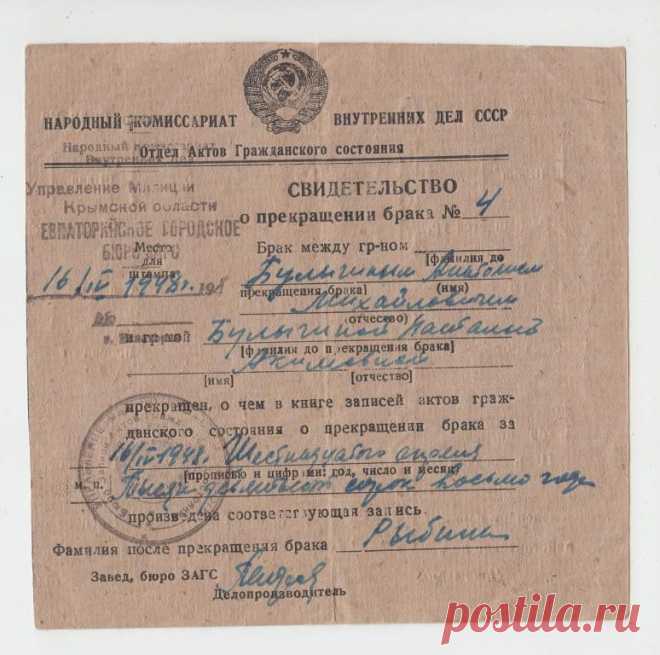 НАРОДНЫЙ КОМИССАРИАТ ВНУТРЕННИХ ДЕЛ СССР
Отдел Актов Гражданского состояния
Народный комиссариат
Внутренних
Управление Милиции
Крымской области
ЕВПАТОРИЙСКОЕ ГОРОДСКОЕ
БЮРО
Место
для
штампа
16/IV 1948г. 194
г. Евпаторий
СВИДЕТЕЛЬСТВО
о прекращении брака № 4
Брак между гр-ном
Булыгиным Анатолием
[фамилия до
прекращения брака] (имя)
Михайловичем
(отчество)
и гр-кой Булыгиной Наталией
[фамилия до прекращения брака]
Акимовной
[имя] [отчество]
прекращен, о чем в книге записей актов граж-
данского состояния о прекращении брака за
16/IV 1948. Шестнадцатого апреля
[прописью и цифрами: год, число и месяц]
м. п. Тысяч девятьсот сорок восьмо года
произведена соответствующая запись.
Фамилия после прекращения брака
Завед, бюро ЗАГС
Делопроизводитель
postila.ru